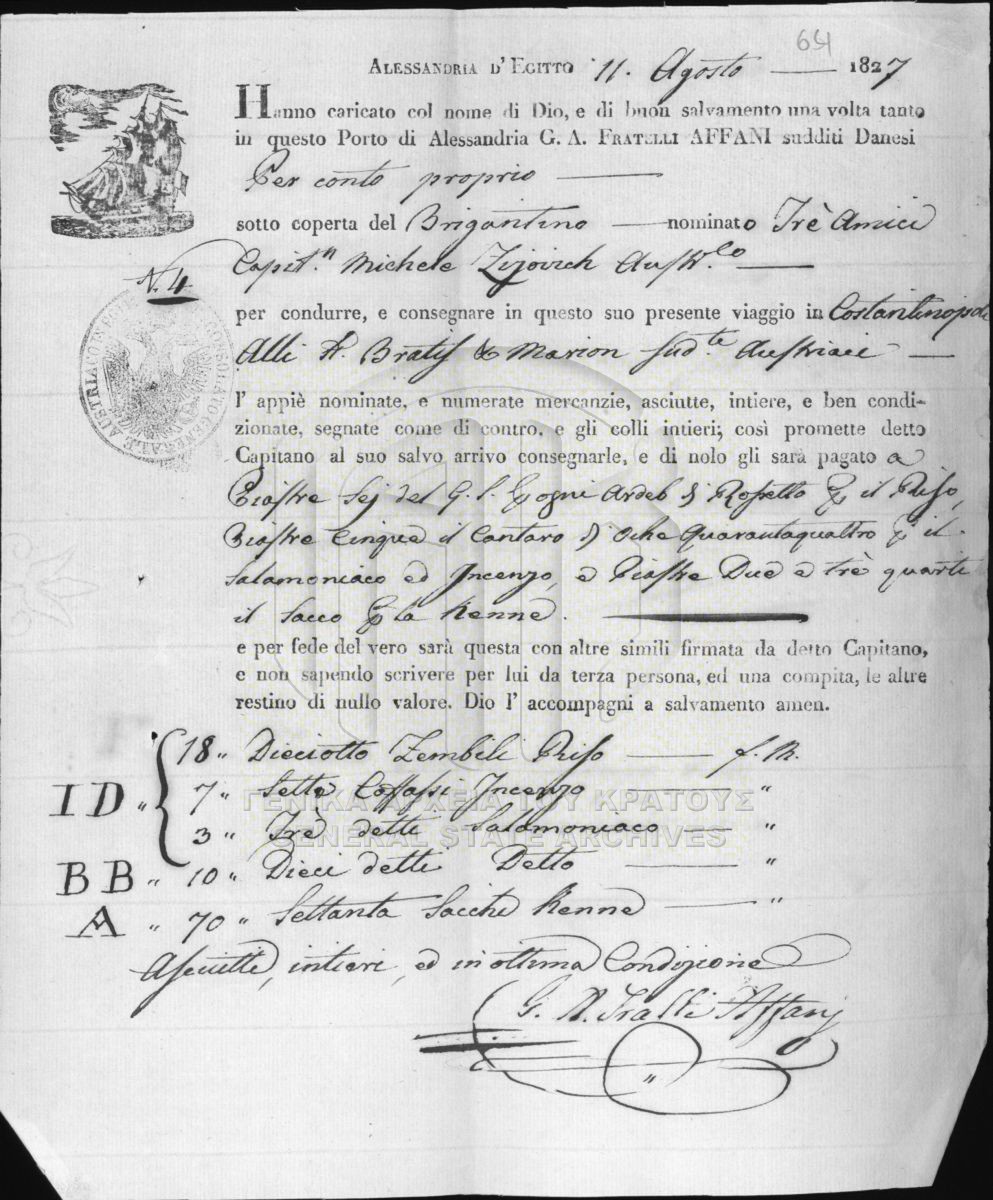 64
ALESSANDRIA D'EGITTO 11. Agosto 1827
Hanno caricato col nome di Dio, e di buon salvamento una volta tanto
in questo Porto di Alessandria G. A. FRATELLI AFFANI sudditi Danesi
Per conto proprio
sotto coperta del Brigantino nominato Trè Amici
Capit.n Michele Zijovich Austr.co
N. 4
per condurre, e consegnare in questo suo presente viaggio in Costantinopoli
Alli Bratis & Marion Sud.te Austriaci
CONSOLATO GENERALE AUSTRIACO
l' appiè nominate, e numerate mercanzie, asciutte, intiere, e ben condi-
zionate, segnate come di contro, e gli colli intieri; così promette detto
Capitano al suo salvo arrivo consegnarle, e di nolo gli sarà pagato a
Piastre Sej del G. S. ogni Ardeb di Rossetto il Riso,
Piastre Cinque il Cantaro di Oche Quarantaquattro il
Salamoniaco ed Incenzo, e Piastre Due e trè quarti
il Sacco la Kenne.
e per fede del vero sarà questa con altre simili firmata da detto Capitano,
e non sapendo scrivere per lui da terza persona, ed una compita, le altre
restino di nullo valore. Dio l' accompagni a salvamento amen.
18 " Dieciotto Zembili Riso
I D " 7 " Sette Coffassi Incenzo "
3 " Trè detti Salamoniaco "
B B " 10 " Dieci detti Detto "
A " 70 " Settanta Sacchi Kenne "
Asciutti, intieri, ed in ottima Condizione
G. A. Fratelli Affanj
ΓΕΝΙΚΑ ΑΡΧΕΙΑ ΤΟΥ ΚΡΑΤΟΥΣ
GENERAL STATE ARCHIVES